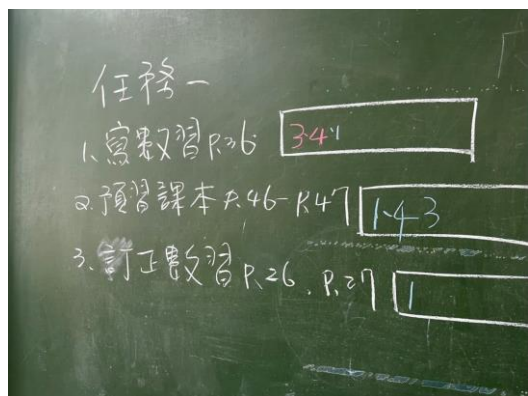 任務一
1、寫數習P.26 3.4 1
2.預習課本P.46-P.47 1.4 3
3、訂正數習P.26、P.27 1